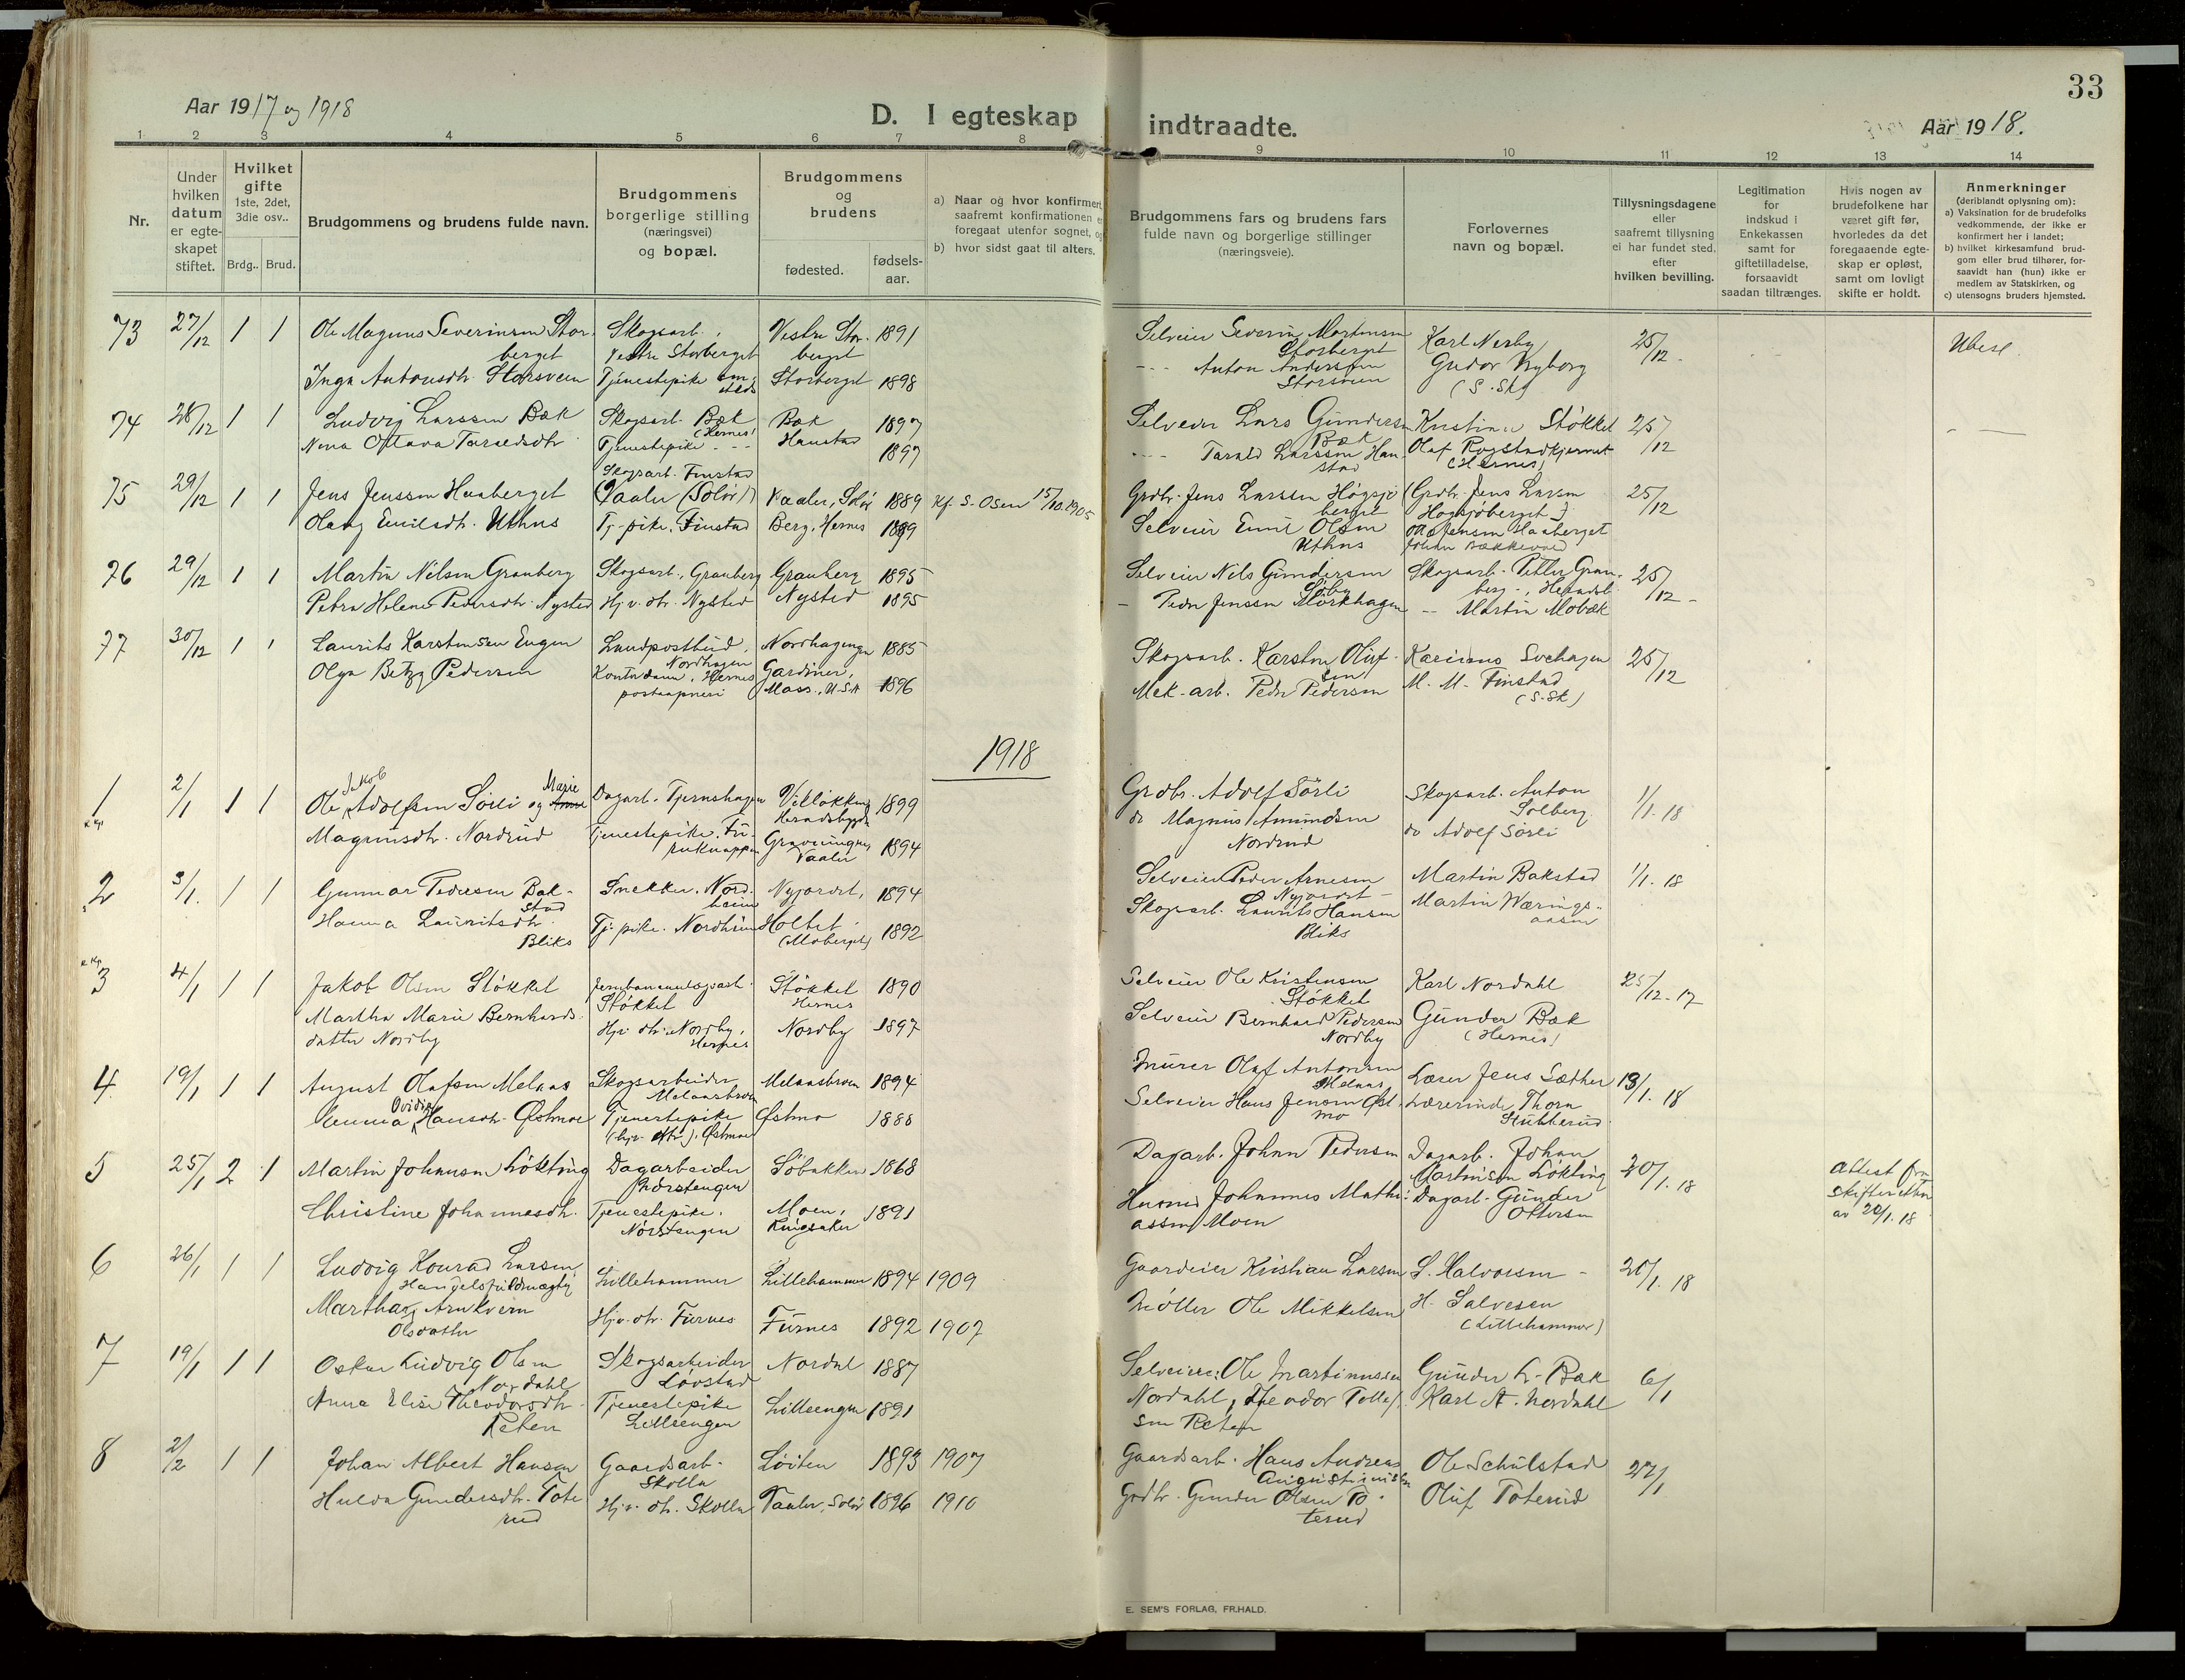 33
Aar 1917 og 1918
D. I egteskap indtraadte.
Aar 1918.
1 2 3 4 5 6 7 8 9 10 11 12 13 14
Nr.
Under hvilken datum er egte-skapet stiftet.
Hvilket gifte 1ste, 2det, 3die osv..
Brdg.. Brud.
Brudgommens og brudens fulde navn.
Brudgommens borgerlige stilling (næringsvei) og bopæl.
Brudgommens og brudens
fødested.
fødsels-aar.
a) Naar og hvor konfirmert, saafremt konfirmationen foregaat utenfor sognet, og
b) hvor sidst gaat til alters.
Brudgommens fars og brudens fars fulde navn og borgerlige stillinger (næringsveie).
Forlovernes navn og bopæl.
Tillysningsdagene eller saafremt tillysning ei har fundet sted, efter hvilken bevilling.
Legitimation for indskud i Enkekassen samt for giftetilladelse, forsaavidt saadan tiltrænges.
Hvis nogen av brudefolkene har været gift før, hvorledes da det foregaaende egte-skap er opløst, samt om lovligt skifte er holdt.
Anmerkninger (deriblandt oplysning om):
a) Vaksination for de brudefolks vedkommende, der ikke er konfirmert her i landet;
b) hvilket kirkesamfund brud-gom eller brud tilhører, for-saavidt han (hun) ikke er medlem av Statskirken, og
c) utensogns bruders hjemsted.
73 27/12 1 1 Ole Magnus Severinsen Stor-berget Skogsarb., Vestre Storberget Vestre Stor-berget 1891 Selveier Severin Martinsen Storberget Karl Nerby 25/12
Inga Antonsdtr. Storsveen Tjenestepike smsteds Storberget 1898 --- Anton Anderssen Storsveen Gudor Nyborg (S. Sk)
74 28/12 1 1 Ludvig Larssen Bæk Skogsarb. Bæk (Hernes) Bæk 1897 Selveier Lars Gundersen Bæk Støkket 25/12
Oltava Tjenestepike --- Haustad 1897 --- Tarald Larssen Hau-stad Olaf Rogstadkjernet (Hernes)
75 29/12 1 1 Jens Jenssen Haaberget Skogsarb. Finstad (Vaaler (Solør)) Vaaler, Solør 1889 Kf. S. Osen 15/10.1905 Grdbr. Jens Larssen Høgsjø-berget (Grdbr. Jens Larssen Høgsjøberget) 25/12
Olaug Emilsdtr. Uthus Tj.-pike, Finstad Berg, Hernes 1899 Selveier Emil Olsen Uthus Jenssen Haaberget
76 29/12 1 1 Martin Nilsen Granberg Skogsarb., Granberg Granberg 1895 Selveier Nils Gundersen Skogsarb. Petter Gran-berg 25/12
Petra Helene Pedersdtr. Nysted Hjv. dtr. Nysted Nysted 1895 - Peder Jenssen Mørkhagen -- Martin Mobæk
77 30/12 1 1 Laurits Karstensen Engen Landpostbud, Nordhagen Nordhagengen 1885 Skogsarb. Karsten Oluf-sen 25/12
Olga Betzy Pedersen Kontordame, Hernes postaapneri Gardiner, Mass., USA 1896 Mek-arb. Peder Pedersen M. M. Finstad (S. Sk)
1918
1 2/1 1 1 Ole Jakob Adolfsen Sørli og Marie Dagarb. Tjernshagen 1899 Grdbr. Adolf Sørli Skogsarb. Anton Solberg 1/1. 18
Magnusdtr. Nordrud Tjenestepike, Vaaler 1894 do Magnus Amundsen Nordrud do Adolf Sørli
2 3/1. 1 1 Gunnar Pedersen Bak-stad Snekker, Nord-heim Nyjordet, 1894 Selveier Peder Arnesen Nyjordet Martin Bakstad 1/1. 18
Hanna Lauritsdtr. Bliks Tj. pike. Nordheim Holtet (Moberget) 1892 Skogsarb. Laurits Hansen Bliks Martin Wærings-aasen
3 4/1 1 1 Jakob Olsen Støkket Jernbaneanlægsarb. Støkket Støkket Hernes 1890 Selveier Ole Kristensen Støkket Karl Nordahl 25/12-17
Martha Marie Bernhards-datter Nordby Hjv. dtr. Nordby, Hernes Nordby 1897 Selveier Bernhard Pedersen Nordby Gunder Bæk (Hernes)
4 19/1 1 1 August Olafsen Melaas Skogsarbeider Melaasbroen Melaasbroen 1894 Murer Olaf Antonsen Melaas Lærer Jens Sæther 13/1. 18
Emma Ovidia Hansdtr. Østmoe Tjenestepike (hjv. dtr.), Østmoe Østmo 1888 Selveier Hans Jensen Øst-mo Lærerinde Thora Stubberud
5 25/1 2 1 Martin Johansen Løkting Dagarbeider Nørstengen Søbakken 1868 Dagarb. Johan Pedersen Dagarb. Johan Martinsen Løkting 20/1. 18 Attest fra skifteretten av 22/1. 18
Christine Johannesdtr. Tjenestepike, Nørstengen Moen, Ringsaker 1891 Husmd Johannes Mathi-assen Moen Dagarb. Gunder Ottersen
6 26/1 1 1 Ludvig Konrad Larsen, Handelsfuldmægtig Lillehammer Lillehammer 1894 1909 Gaardeier Kristian Larsen S. Halvorsen 20/1. 18
Martha Arnkvern Olsdatter Hjv. dtr. Furnes Furnes 1892 1907 Møller Ole Mikkelsen H. Salvesen (Lillehammer)
7 19/1 1 1 Oskar Ludvig Olsen Nordahl Skogsarbeider Løvstad Nordal 1887 Selveier: Ole Martinussen Nordahl, Theodor Tollef-sen Reten Gunder L. Bæk 6/1
Anna Elise Theodorsdtr. Reten Tjenestepike Lilleengen Lilleengen 1891 Karl A. Nordahl
8 2/2 1 1 Johan Albert Hansen Gaardsarb. Skolla Løiten 1893 1907 Gaardsarb. Hans Andreas Augustinussen Ole Schulstad 27/1
Hulda Gundersdtr. Tote-rud Hjv. dtr. Skolla Vaaler, Solør 1896 1910 Grdbr. Gunder Olsen To-terud Oluf Toterud
E. SEM'S FORLAG, FR.HALD.